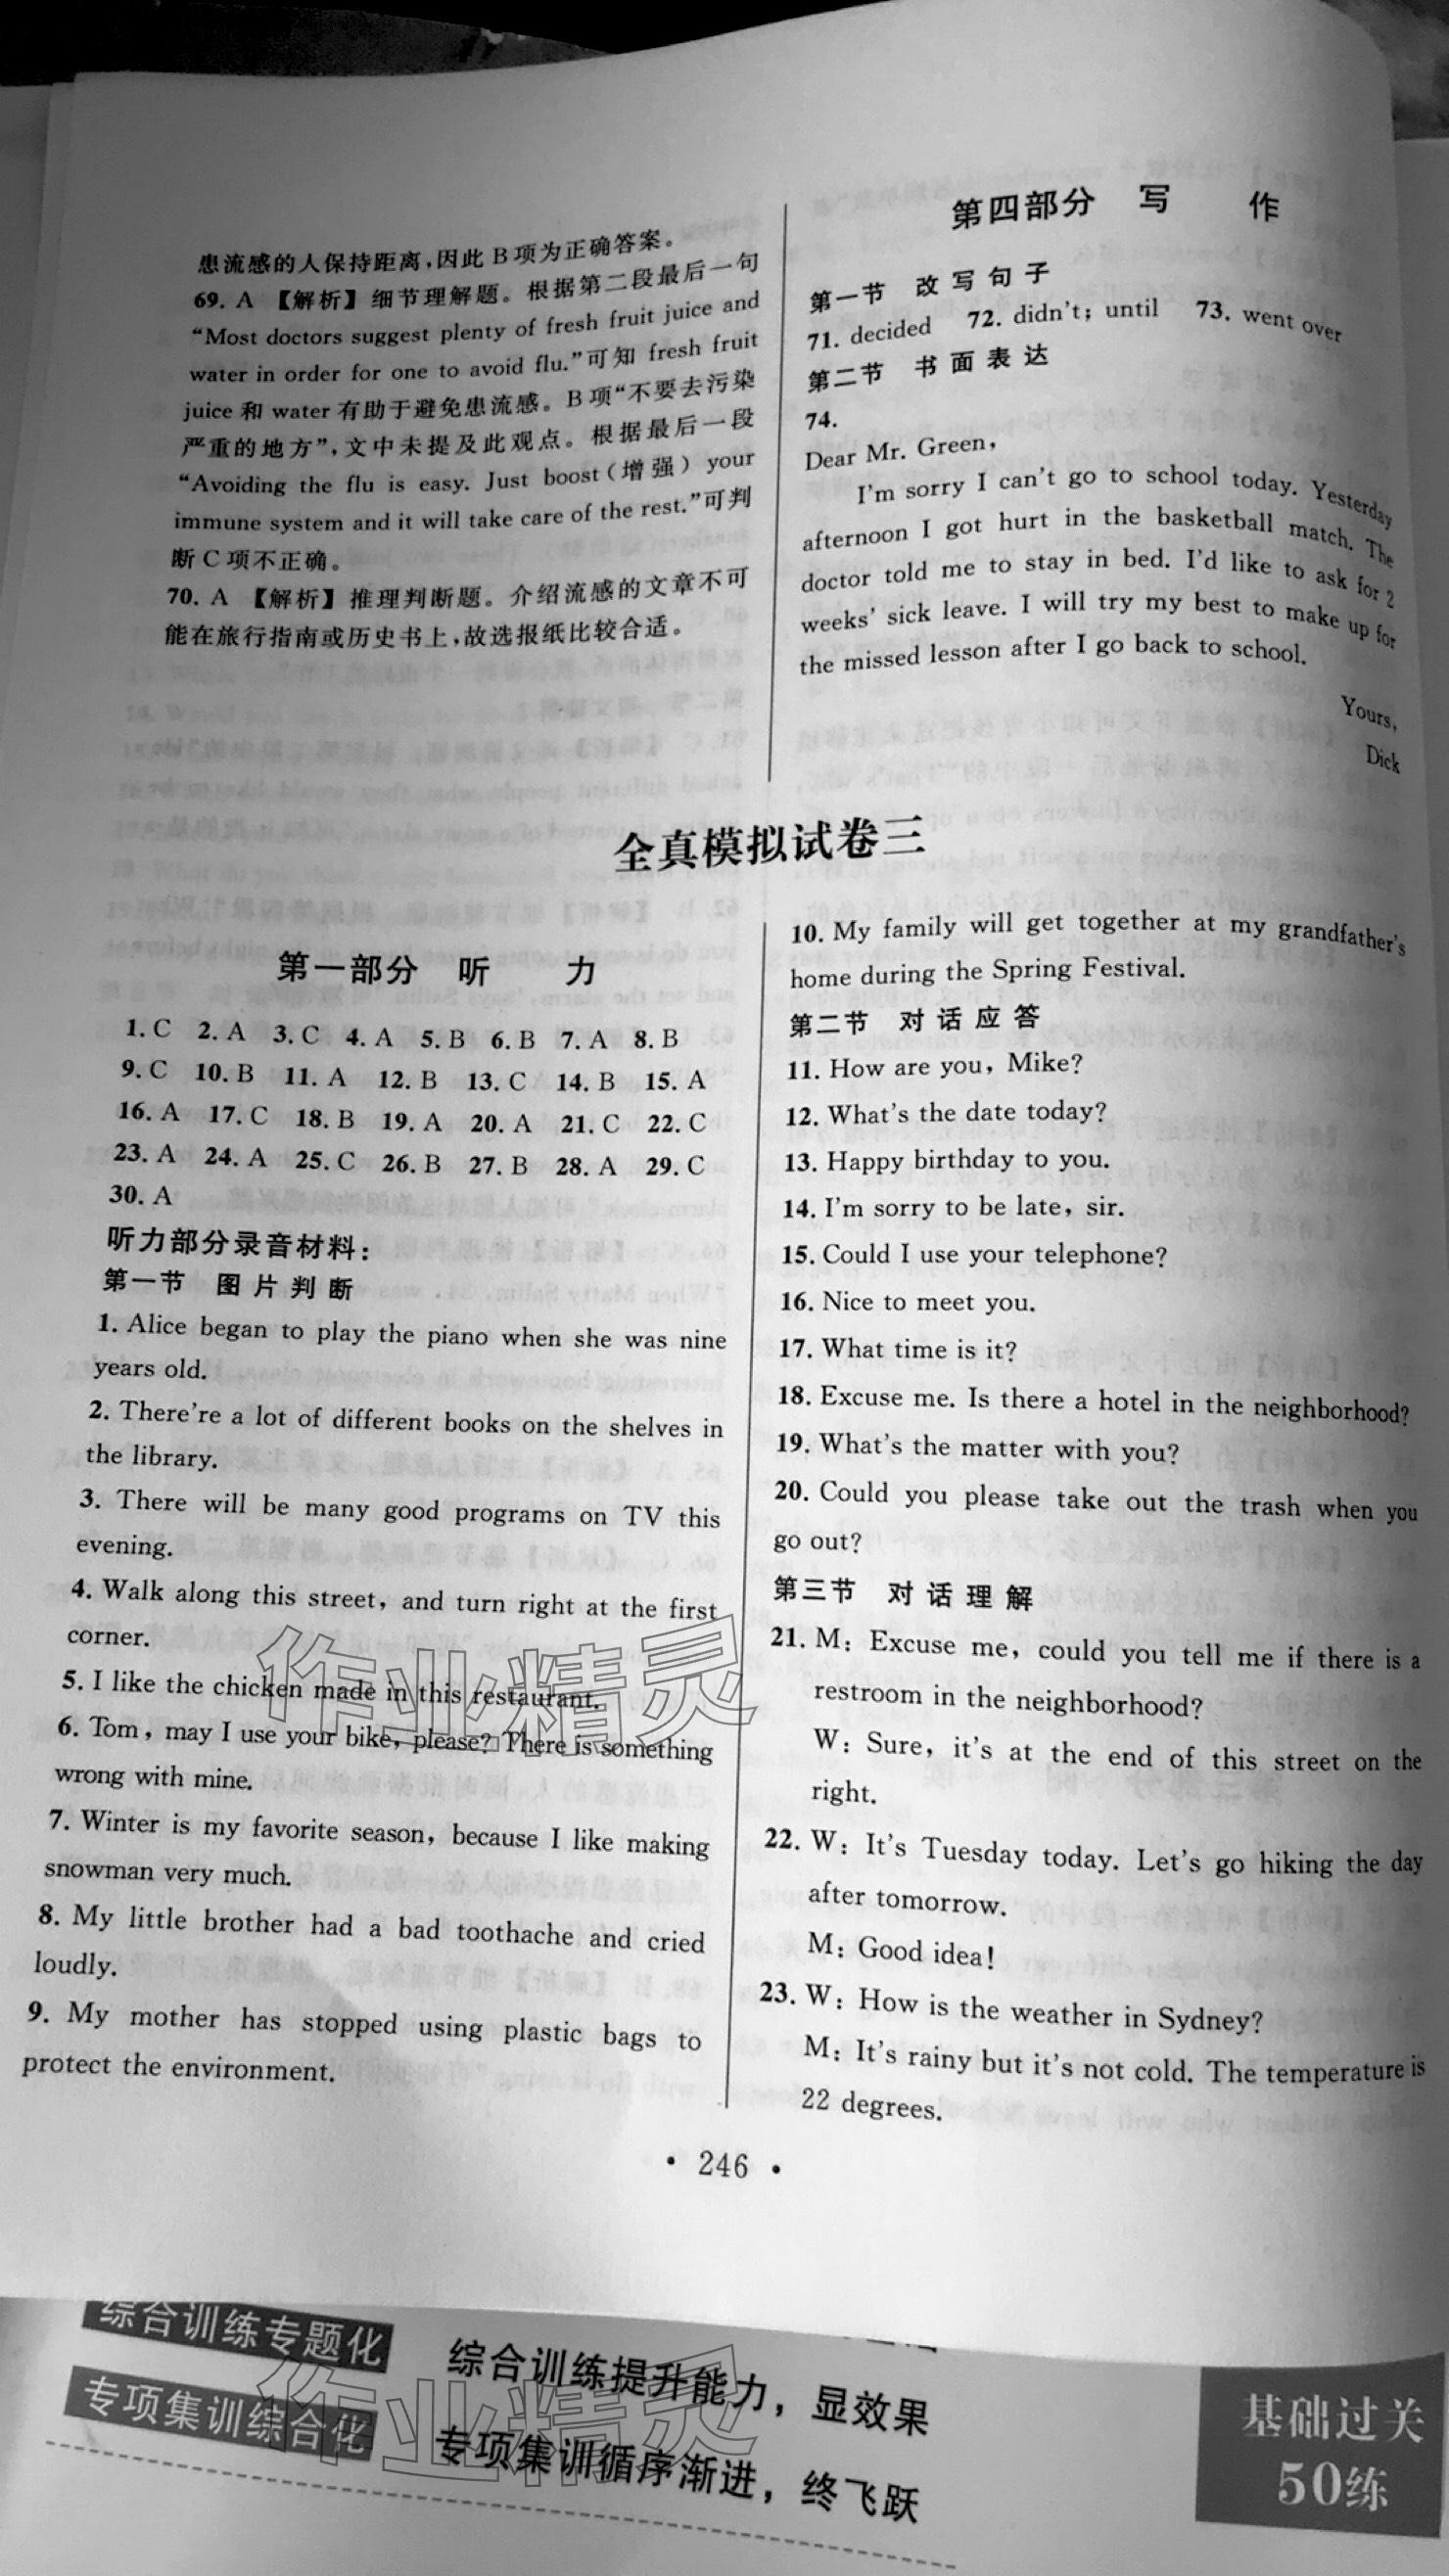 患流感的人保持距离,因此 B 项为正确答案。
69. A 【解析】细节理解题。根据第二段最后一句
“Most doctors suggest plenty of fresh fruit juice and
water in order for one to avoid flu.”可知 fresh fruit
juice 和 water 有助于避免患流感。B项“不要去污染
严重的地方”,文中未提及此观点。根据最后一段
“Avoiding the flu is easy. Just boost(增强) your
immune system and it will take care of the rest.”可判
断 C 项不正确。
70. A 【解析】推理判断题。介绍流感的文章不可
能在旅行指南或历史书上,故选报纸比较合适。
第四部分 写 作
第一节 改写句子
71. decided 72. didn't; until 73. went over
第二节 书面表达
74.
Dear Mr. Green,
I'm sorry I can't go to school today. Yesterday
afternoon I got hurt in the basketball match. The
doctor told me to stay in bed. I'd like to ask for 2
weeks' sick leave. I will try my best to make up for
the missed lesson after I go back to school.
Yours,
Dick
全真模拟试卷三
第一部分 听 力
1. C 2. A 3. C 4. A 5. B 6. B 7. A 8. B
9. C 10. B 11. A 12. B 13. C 14. B 15. A
16. A 17. C 18. B 19. A 20. A 21. C 22. C
23. A 24. A 25. C 26. B 27. B 28. A 29. C
30. A
听力部分录音材料:
第一节 图片判断
1. Alice began to play the piano when she was nine
years old.
2. There're a lot of different books on the shelves in
the library.
3. There will be many good programs on TV this
evening.
4. Walk along this street, and turn right at the first
corner.
5. I like the chicken made in this restaurant.
6. Tom, may I use your bike, please? There is something
wrong with mine.
7. Winter is my favorite season, because I like making
snowman very much.
8. My little brother had a bad toothache and cried
loudly.
9. My mother has stopped using plastic bags to
protect the environment.
10. My family will get together at my grandfather's
home during the Spring Festival.
第二节 对话应答
11. How are you, Mike?
12. What's the date today?
13. Happy birthday to you.
14. I'm sorry to be late, sir.
15. Could I use your telephone?
16. Nice to meet you.
17. What time is it?
18. Excuse me. Is there a hotel in the neighborhood?
19. What's the matter with you?
20. Could you please take out the trash when you
go out?
第三节 对话理解
21. M: Excuse me, could you tell me if there is a
restroom in the neighborhood?
W: Sure, it's at the end of this street on the
right.
22. W: It's Tuesday today. Let's go hiking the day
after tomorrow.
M: Good idea!
23. W: How is the weather in Sydney?
M: It's rainy but it's not cold. The temperature is
22 degrees.
作业精灵
· 246 ·
综合训练专题化
综合训练提升能力,显效果
专项集训综合化
专项集训循序渐进,终飞跃
作业精灵
基础过关
50练